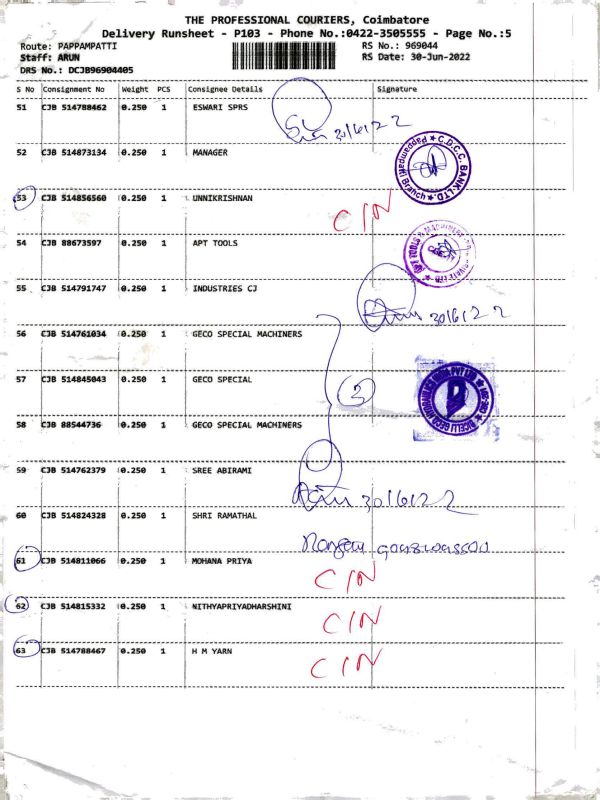 THE PROFESSIONAL COURIERS, Coimbatore
Delivery Runsheet - P103 - Phone No.:0422-3505555 - Page No.:5
Route: PAPPAMPATTI RS No.: 969044
Staff: ARUN RS Date: 30-Jun-2022
DRS No.: DCJB96904405
S No Consignment No Weight PCS Consignee Details Signature
51 CJB 514788462 0.250 1 ESWARI SPRS
30/6/22
52 CJB 514873134 0.250 1 MANAGER
C.D.C.C. BANK LTD. Pappampatti Branch
53 CJB 514856560 0.250 1 UNNIKRISHNAN
C/N
54 CJB 88673597 0.250 1 APT TOOLS
55 CJB 514791747 0.250 1 INDUSTRIES CJ
30/6/22
56 CJB 514761034 0.250 1 GECO SPECIAL MACHINERS
57 CJB 514845043 0.250 1 GECO SPECIAL
3
58 CJB 88544736 0.250 1 GECO SPECIAL MACHINERS
59 CJB 514762379 0.250 1 SREE ABIRAMI
30/6/22
60 CJB 514824328 0.250 1 SHRI RAMATHAL
61 CJB 514811066 0.250 1 MOHANA PRIYA
C/N
62 CJB 514815332 0.250 1 NITHYAPRIYADHARSHINI
C/N
63 CJB 514788467 0.250 1 H M YARN
C/N